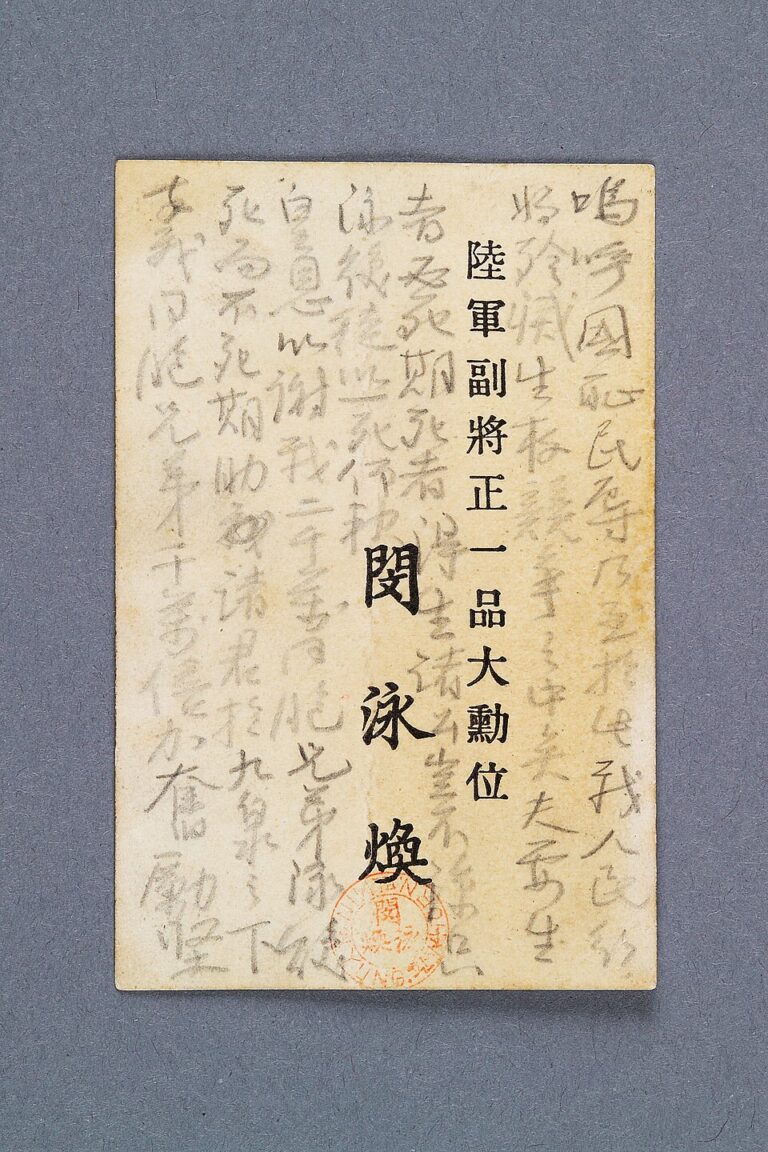 嗚呼國恥民辱乃至於此我人民行
將殄滅生存競爭之中矣夫要生
陸軍副將正一品大勳位
者必死期死者得生諸公豈不諒只
閔泳煥
泳煥徒以死仰報
皇恩以謝我二千萬同胞兄弟泳煥
死而不死期助我諸君於九泉之下
幸我同胞兄弟千萬倍加奮勵堅
閔泳煥